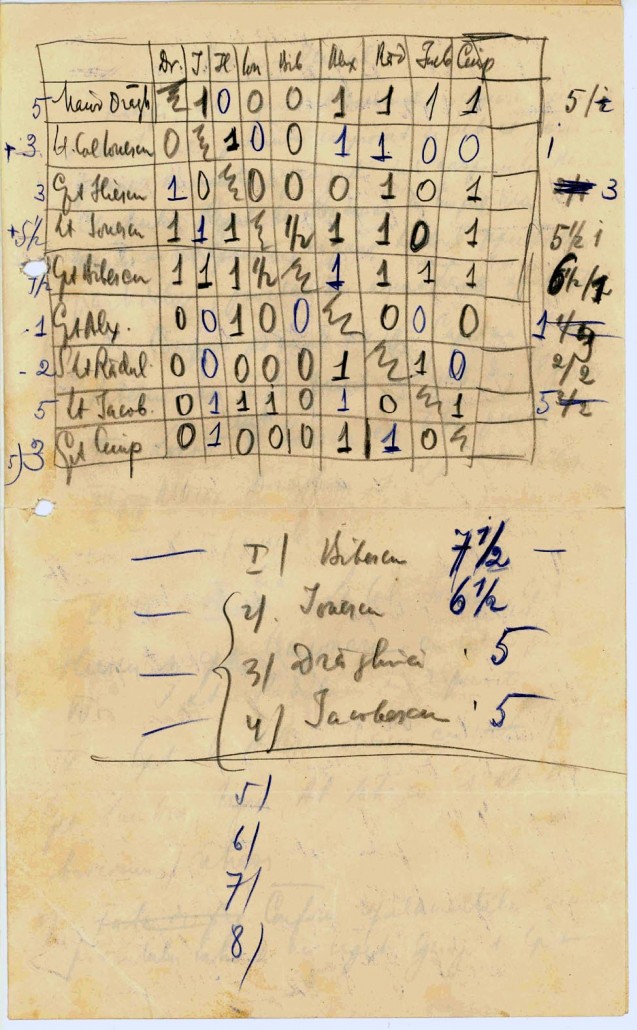 Dr. I. H. Ion Bib Alex Rad Jacb Cimp
5 Maior Drăgh 1 0 0 0 1 1 1 1 5/
+3 Lt. Col Ionescu 0 1 0 0 1 1 0 0 1
3 Cpt Iliescu 1 0 0 0 0 1 0 1 3
+5½ Lt Ionescu 1 1 1 ½ 1 1 0 1 5½ 1
7½ Cpt Bibescu 1 1 1 ½ 1 1 1 1 6½/1
1 Cpt Alex. 0 0 1 0 0 0 0 0 1
2 Slt Rădul. 0 0 0 0 0 1 1 0 2/2
5 Lt Jacob. 0 1 1 1 0 1 0 1 5
3 Cpt Cimp 0 1 0 0 0 1 1 0
I/ Bibescu 7½ —
2/. Ionescu 6½
3/ Drăghici 5
4/ Jacobescu 5
5/
6/
7/
8/